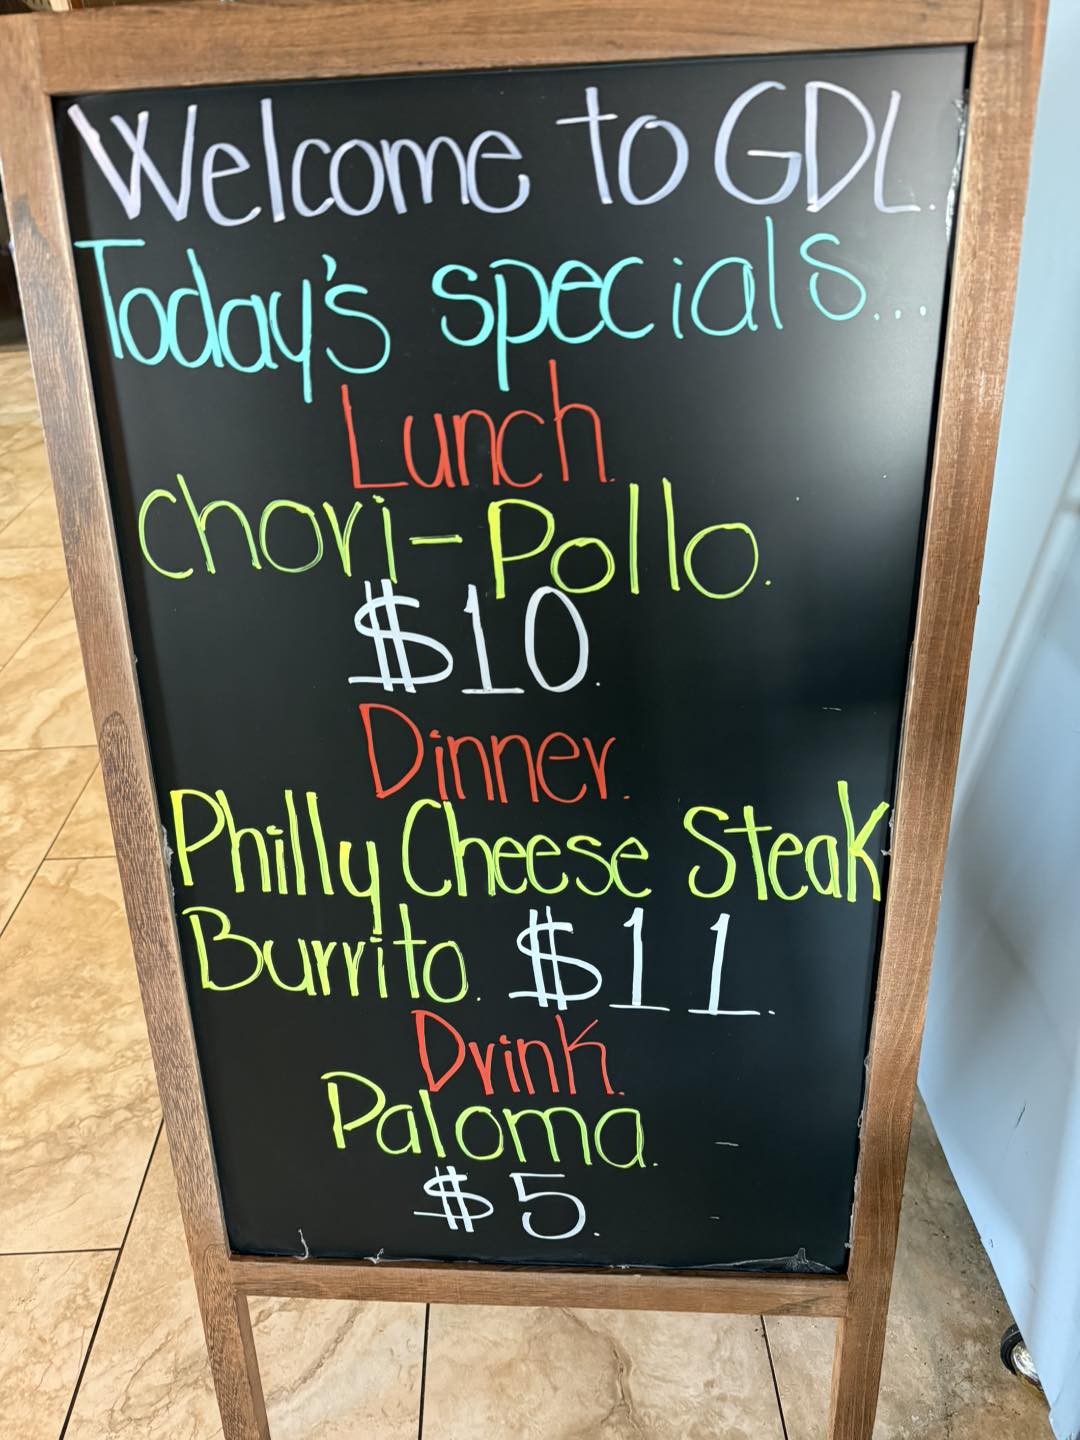 Welcome to GDL.
Today's specials...
Lunch.
Chori-Pollo.
$10.
Dinner.
Philly Cheese Steak
Burrito. $11.
Drink.
Paloma.
$5.